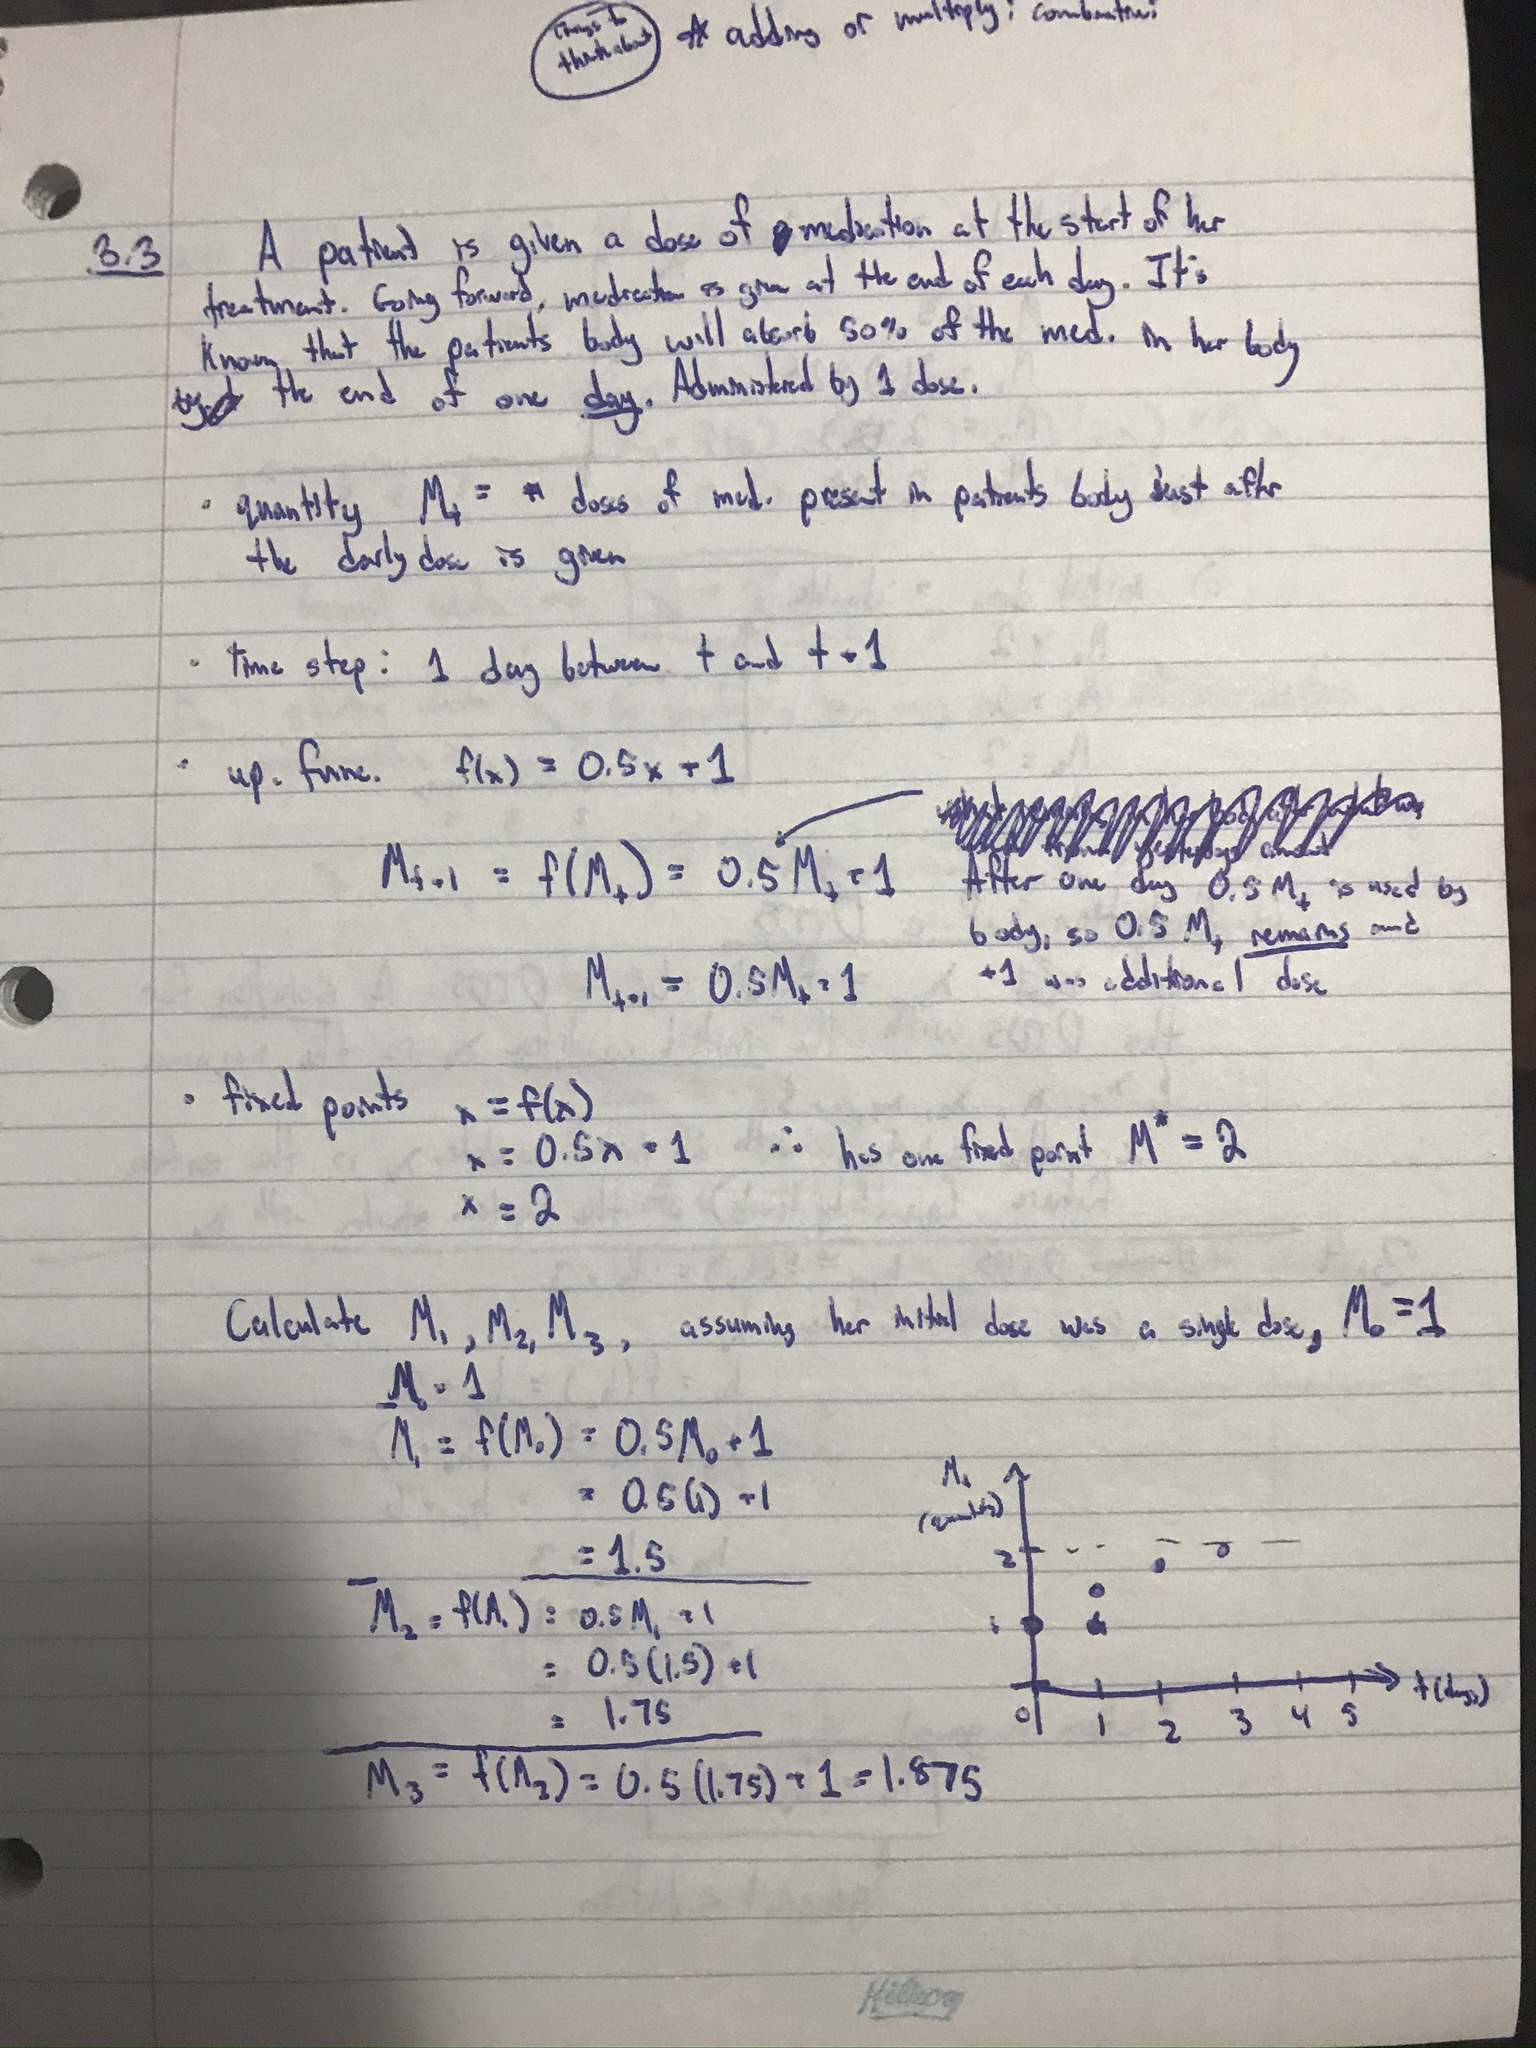 things to
think about
* adding or multiply; combination:
3.3 A patient is given a dose of medication at the start of her
treatment. Going forward, medication is given at the end of each day. It's
known that the patients body will absorb 50% of the med. in her body
by the end of one day. Administered by 1 dose.
• quantity Mt = # doses of med. present in patients body just after
the daily dose is given
• Time step: 1 day between t and t+1
• up. func. f(x) = 0.5x + 1
Mt+1 = f(Mt) = 0.5Mt + 1
After one day 0.5 Mt is used by
body, so 0.5 Mt remains and
+1 was additional dose
Mt+1 = 0.5Mt + 1
• fixed points x = f(x)
x = 0.5x + 1 ∴ has one fixed point M* = 2
x = 2
Calculate M1, M2, M3, assuming her initial dose was a single dose, M0 = 1
M0 = 1
M1 = f(M0) = 0.5M0 + 1
= 0.5(1) + 1
= 1.5
M2 = f(M1) = 0.5M1 + 1
= 0.5(1.5) + 1
= 1.75
M3 = f(M2) = 0.5(1.75) + 1 = 1.875
Mt
2
1
0 1 2 3 4 5 t(days)
Hilroy